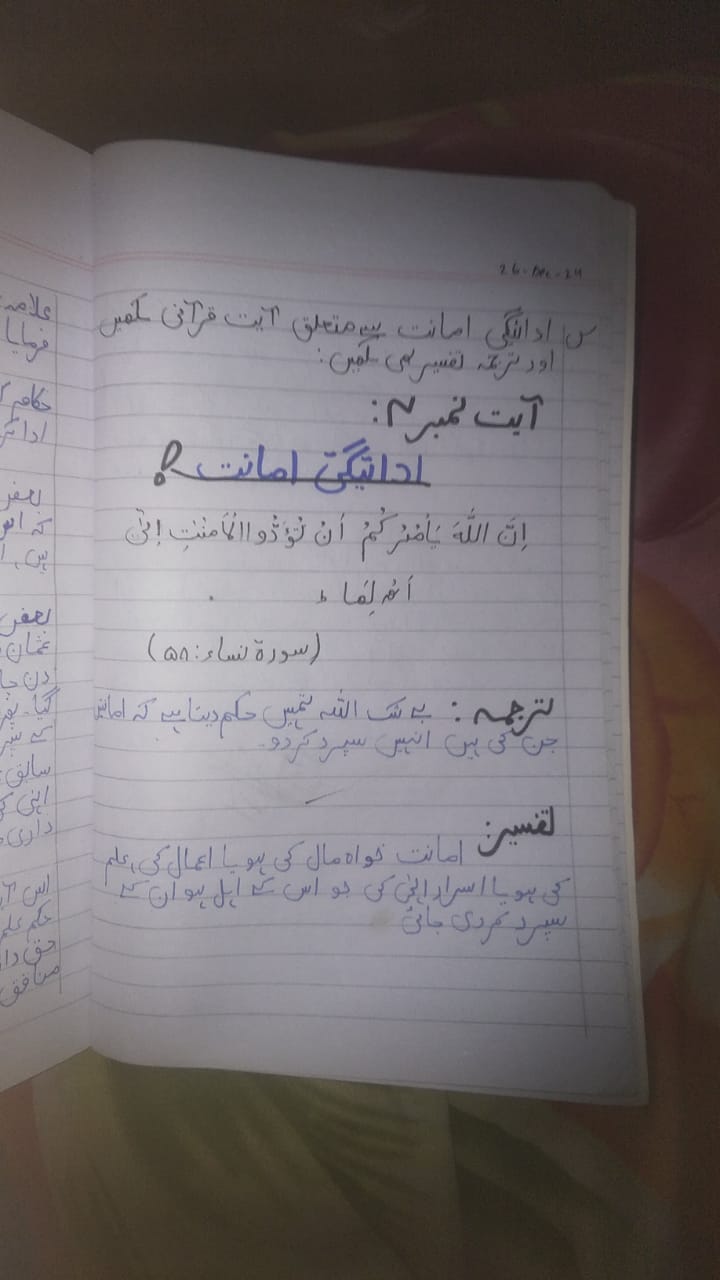 26-Dec-24
س ادائیگی امانت سے متعلق آیت قرآنی لکھیں
اور ترجمہ تفسیر بھی لکھیں:
آیت نمبر ۴:
ادائیگی امانت
اِنَّ اللّٰهَ يَأْمُرُكُمْ أَنْ تُؤَدُّوا الْأَمٰنٰتِ اِلٰى
(سورۃ نساء: ۵۸)
ترجمہ: بے شک اللہ تمہیں حکم دیتا ہے کہ
جن کی ہیں انہیں سپرد کردو۔
تفسیر:
امانت خواہ مال کی ہو یا اعمال کی، علم
کی ہو یا اسرار الٰہی کی جو اس کے اہل ہو ان کے
سپرد کردی جائے
علامہ
فرمایا
حکام
بعض
ہیں
بعض
عثمان
دن
گیا
کے سپر
سابق
اپنی
داری
اس
حکم علم
حق دا
منافق